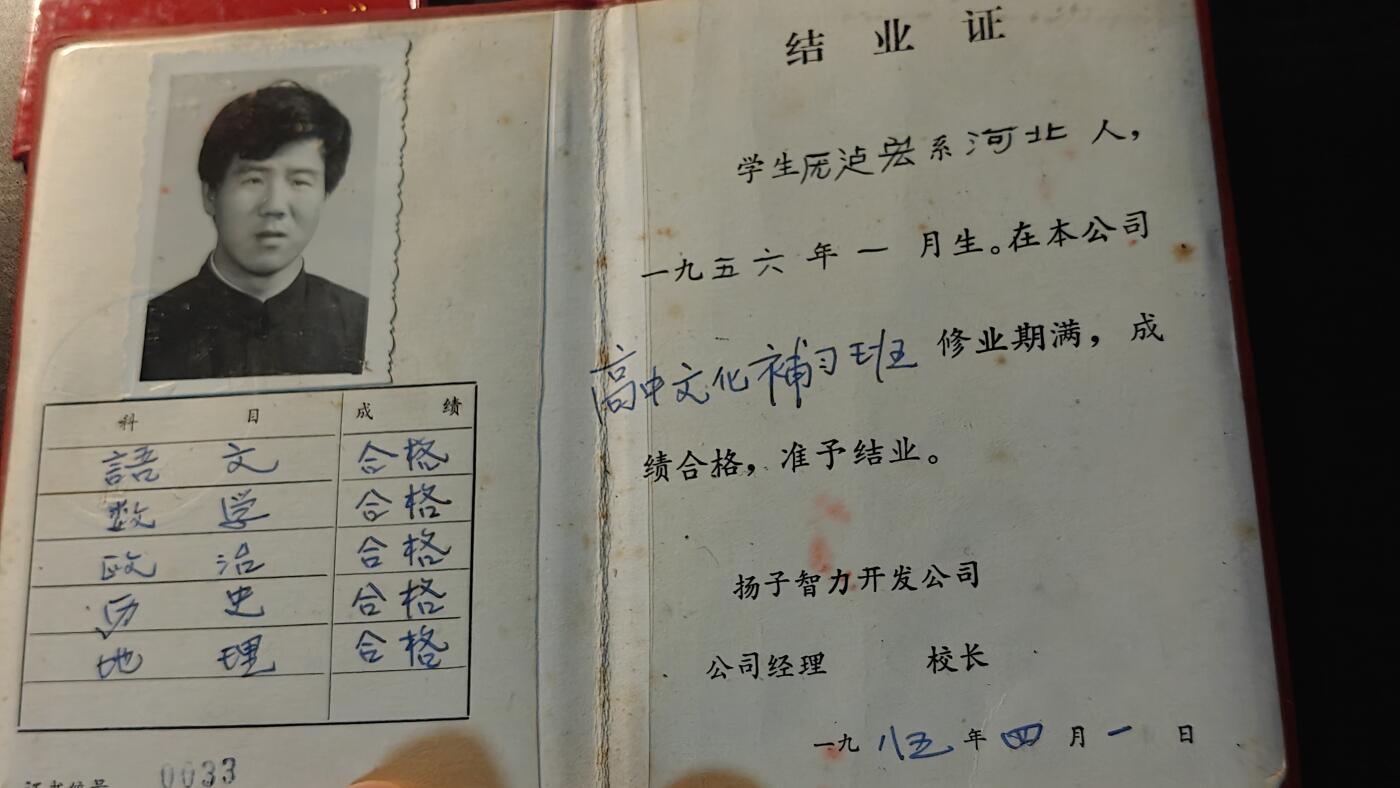 科 目 成 绩
語 文 合格
数 学 合格
政 治 合格
历 史 合格
地 理 合格
0033
结 业 证
学生 泸宏系河北 人，
一九五六年一月生。在本公司
高中文化補习班修业期满，成
绩合格，准予结业。
扬子智力开发公司
公司经理 校长
一九八五年四月一日